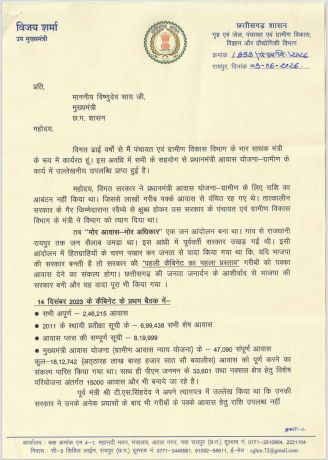 विजय शर्मा
उप मुख्यमंत्री
छत्तीसगढ़ शासन
गृह एवं जेल, पंचायत एवं ग्रामीण विकास,
विज्ञान और प्रौद्योगिकी विभाग
क्रमांक 2026
रायपुर, दिनांक 09-06-2026
प्रति,
माननीय विष्णुदेव साय जी,
मुख्यमंत्री
छ.ग. शासन
महोदय,
विगत ढाई वर्षो से मैं पंचायत एवं ग्रामीण विकास विभाग के भार साधक मंत्री
के रूप में कार्यरत हूं। इस अवधि में सभी के सहयोग से प्रधानमंत्री आवास योजना–ग्रामीण के
कार्य में उल्लेखनीय उपलब्धि प्राप्त हुई है।
महोदय, विगत सरकार ने प्रधानमंत्री आवास योजना–ग्रामीण के लिए राशि का
आबंटन नहीं किया था। जिससे लाखों गरीब पक्के आवास से वंचित रह गए थे। तात्कालीन
सरकार के गैर जिम्मेदाराना रवैय्ये से क्षुब्ध होकर उस सरकार के पंचायत एवं ग्रामीण विकास
के मंत्री ने विभाग को त्याग दिया था।
तब "मोर आवास–मोर अधिकार" एक जन आंदोलन बना था। गांव से राजधानी
रायपुर तक जन सैलाब उमड़ा था। इस आंधी में पूर्ववर्ती सरकार उखड़ गई थी। इसी
आंदोलन में हितग्राहियों के चरण पखार कर जनता से वादा किया गया था कि, यदि भाजपा
की सरकार बनती है तो सरकार की "पहली कैबिनेट का पहला प्रस्ताव" गरीबों को पक्का
आवास देने का संकल्प होगा। छत्तीसगढ़ की जनता जनार्दन के आशीर्वाद से भाजपा की
सरकार बनी और यह वादा पूरा भी किया गया।
14 दिसंबर 2023 के कैबिनेट के प्रथम बैठक में–
• सभी अपूर्ण - 2,46,215 आवास
• 2011 के स्थायी प्रतीक्षा सूची के - 6,99,438 सभी शेष आवास
• आवास प्लस की सम्पूर्ण सूची - 8,19,999
• मुख्यमंत्री आवास योजना (ग्रामीण आवास न्याय योजना) के – 47,090 संपूर्ण आवास
कुल–18,12,742 (अठ्ठारह लाख बारह हजार सात सौ बयालीस) आवास को पूर्ण करने का
संकल्प पारित किया गया था। साथ ही पीएम जनमन के 33,601 तथा नक्सल क्षेत्र हेतु विशेष
परियोजना अंतर्गत 15000 आवास और भी बनाये जा रहे है।
पूर्व मंत्री श्री टी.एस.सिंहदेव ने अपने त्यागपत्र में उल्लेख किया था कि उनकी
सरकार ने उनके अनेक प्रयासों के बाद भी गरीबों के पक्के आवास हेतु राशि उपलब्ध नहीं
कार्यालय : कक्ष क्रमांक एम 4–1, महानदी भवन, मंत्रालय, अटल नगर, नवा रायपुर (छ.ग.) दूरभाष नं. 0771-2510904, 2221104
निवास : सी–3 सिविल लाईन, रायपुर (छ.ग.) दूरभाष नं. 0771-2445561, फैक्स